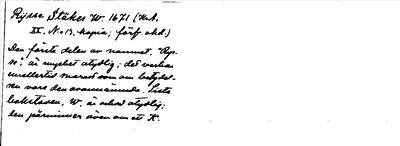 Rysse Stäkes W. 1671 (K.A.
XI, No 13, kopia; förf. okd.)
Den förste delen av namnet, "Rys-
se" är mycket otydlig; det verkar
emellertid som om betydel-
sen vore den ovannämnda. Sista
bokstaven, W, är också otydlig;
den påminner även om ett K.